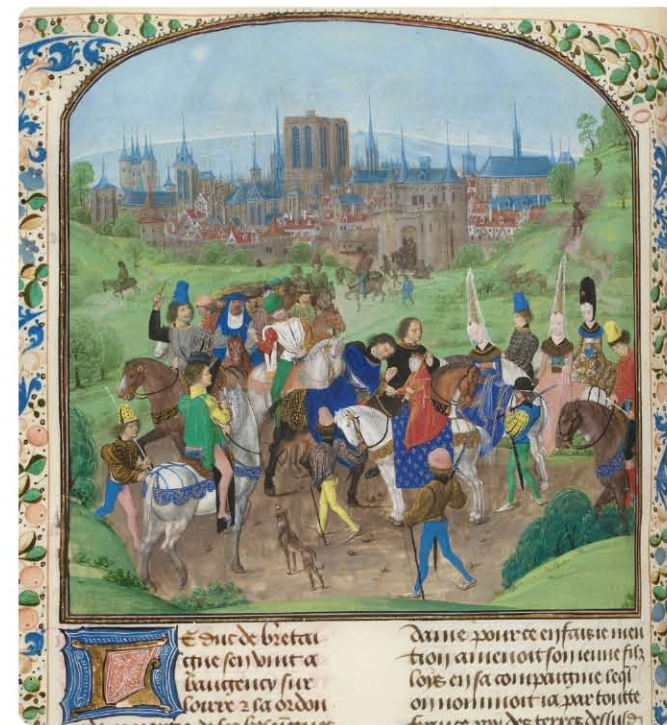 LE duc de bretai
gne sen vint a
baugency sur
loirre & la ordon
dame pour ce en faisie men
tion amenoit son ienne filz
loys en sa compaignie leql
on nommoit ia par toutte